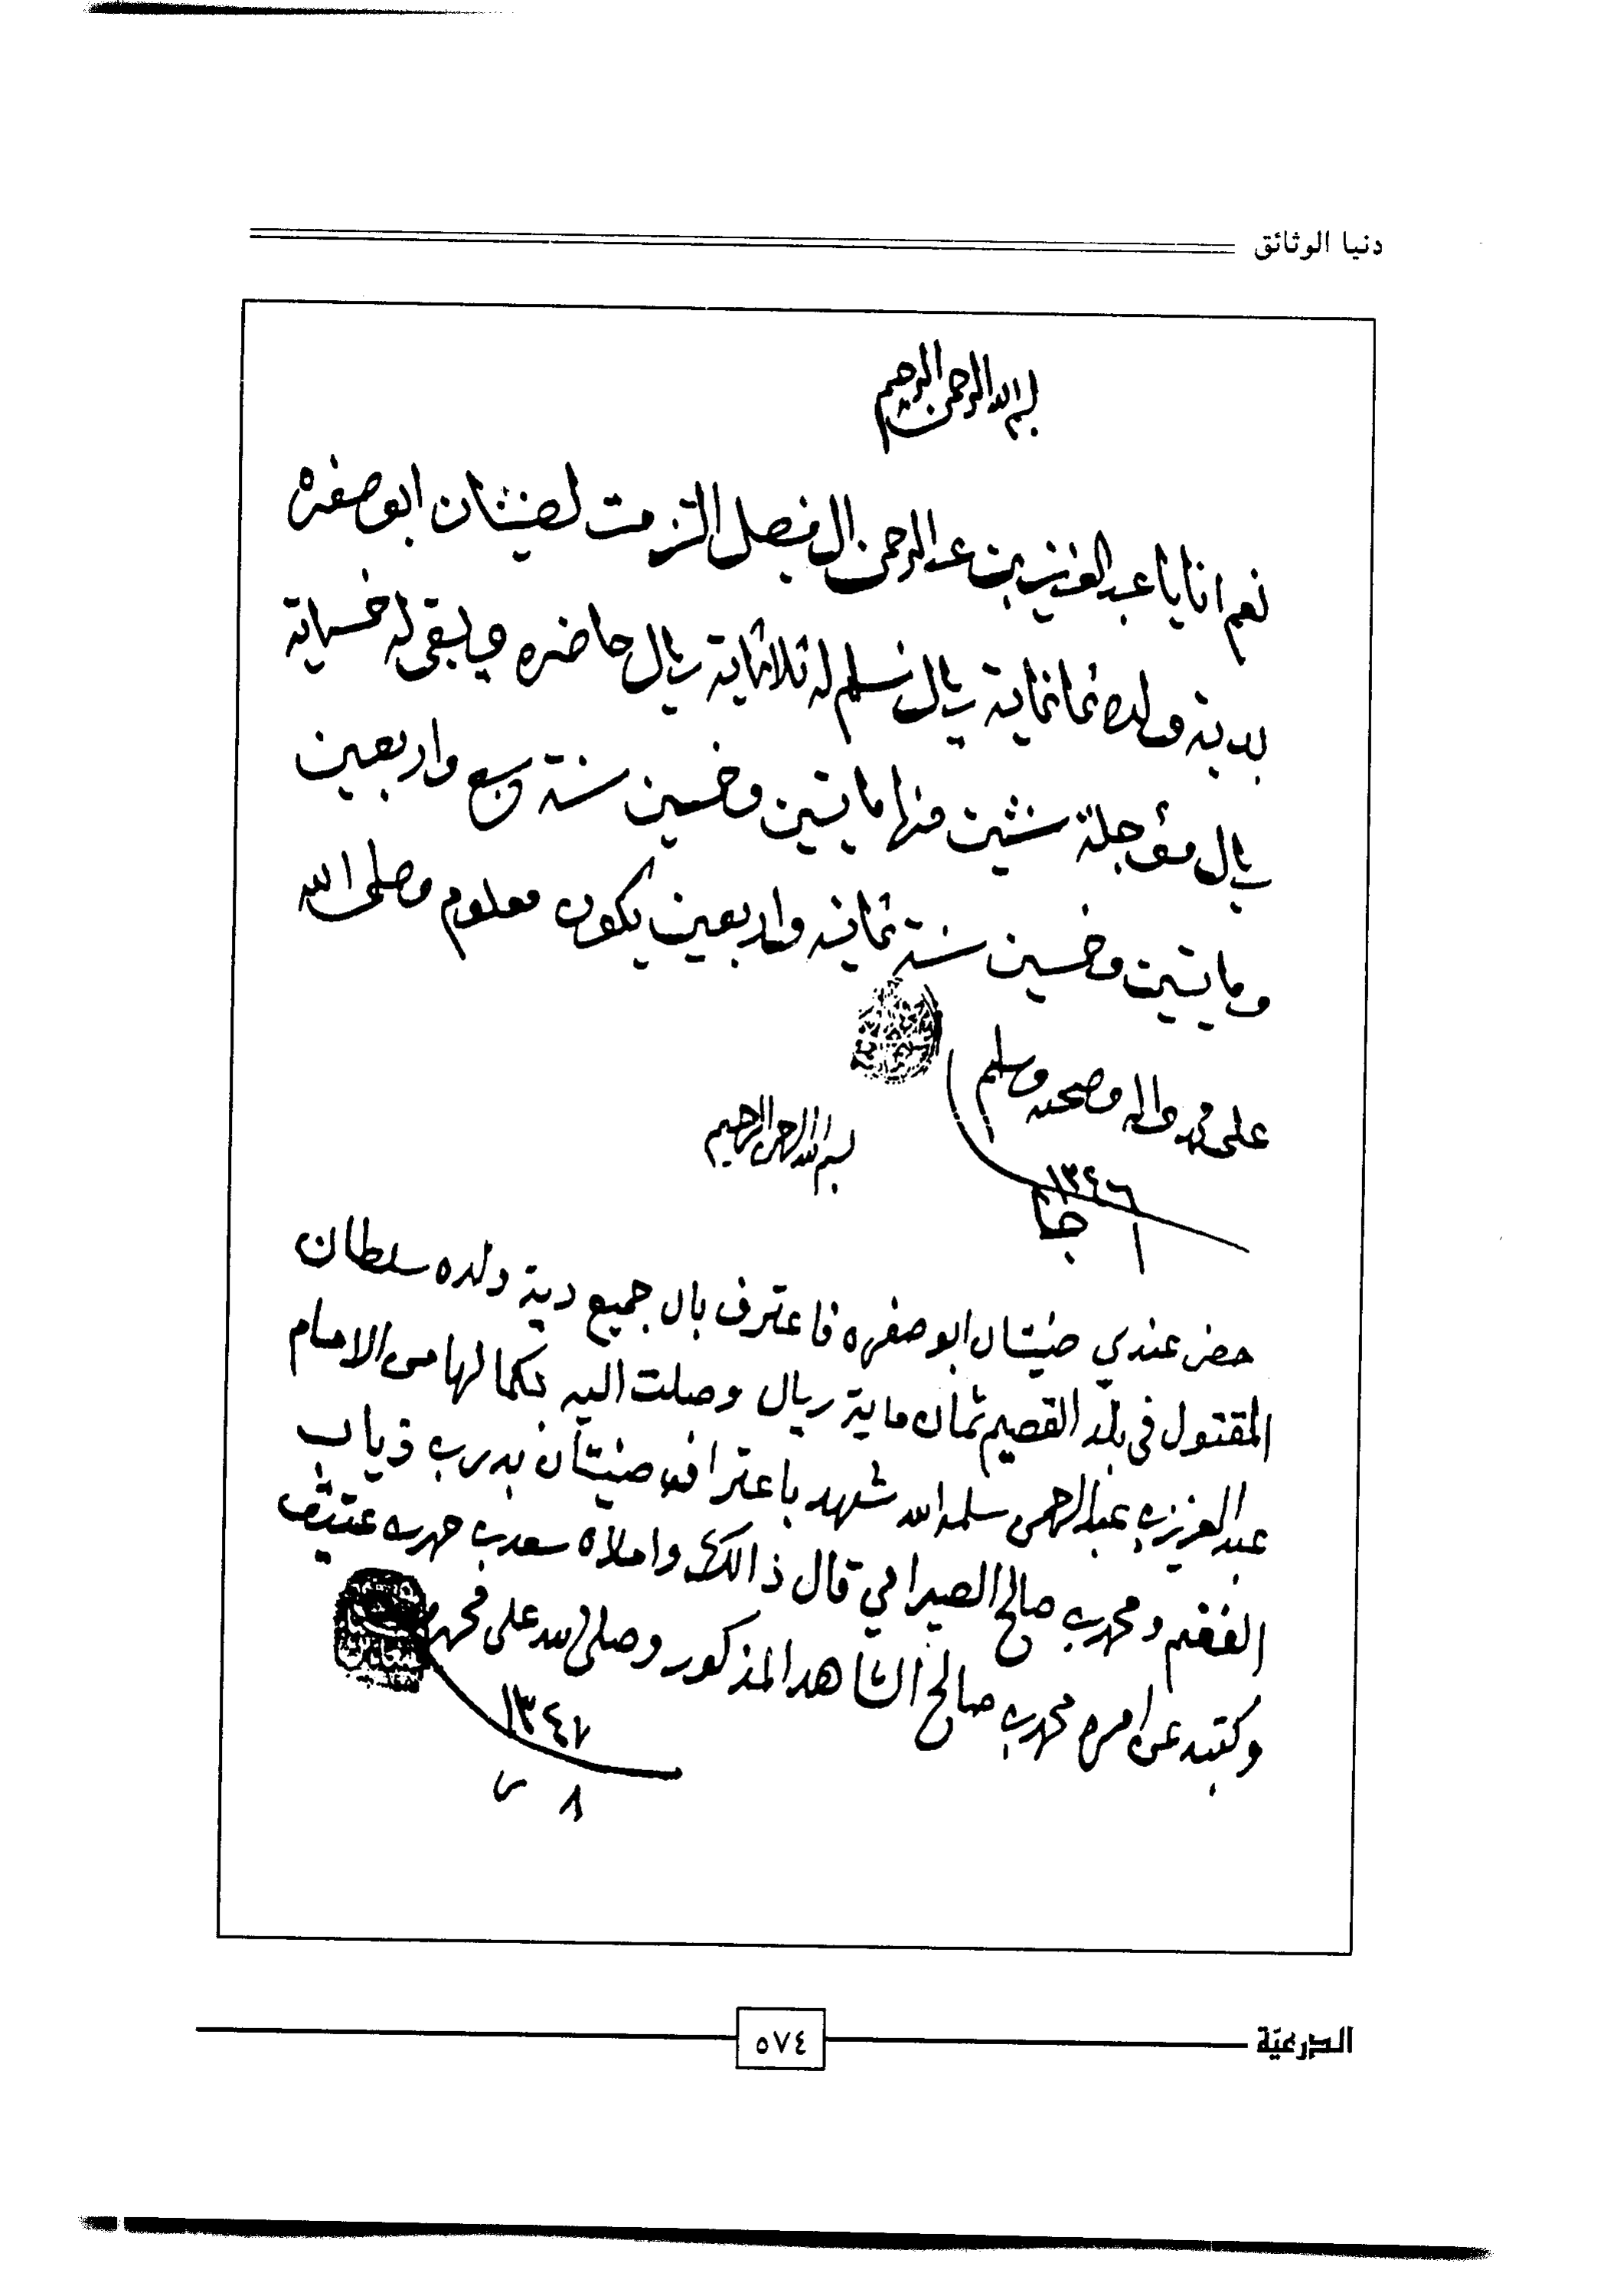 دنيا الوثائق
بسم الله الرحمن الرحيم
نعم انايا عبد العزيز بن عبد الرحمن ال فيصل التزمت لضيتان ابو صفره
بدية ولده ثمانماية ريال نسلم له ثلاثماية ريال حاضره ويبقى له خمسماية
ريال مؤجلة سنتين منها مايتين وخمسين سنة سبع واربعين
ومايتين وخمسين سنة ثمانيه واربعين يكون معلوم وصلى الله
على محمد واله وصحبه وسلم
١٣٤٦
جا
١
بسم الله الرحمن الرحيم
حضر عندي ضيتان ابو صفره فاعترف بان جميع دية ولده سلطان
المقتول في بلد القصيم ثمان ماية ريال وصلت اليه بكمالها من الامام
عبد العزيز بن عبد الرحمن سلمه الله شهد باعترافه ضيتان بدر بن ذياب
الفغم ومحمد بن صالح الصيرامي قال ذالك واملاه سعد بن حمد بن عتيق
وكتبه عن امره محمد بن صالح الشاهد المذكور وصلى الله على محمد
١٣٤٧
٨ ر
الدرعيّة
٥٧٤